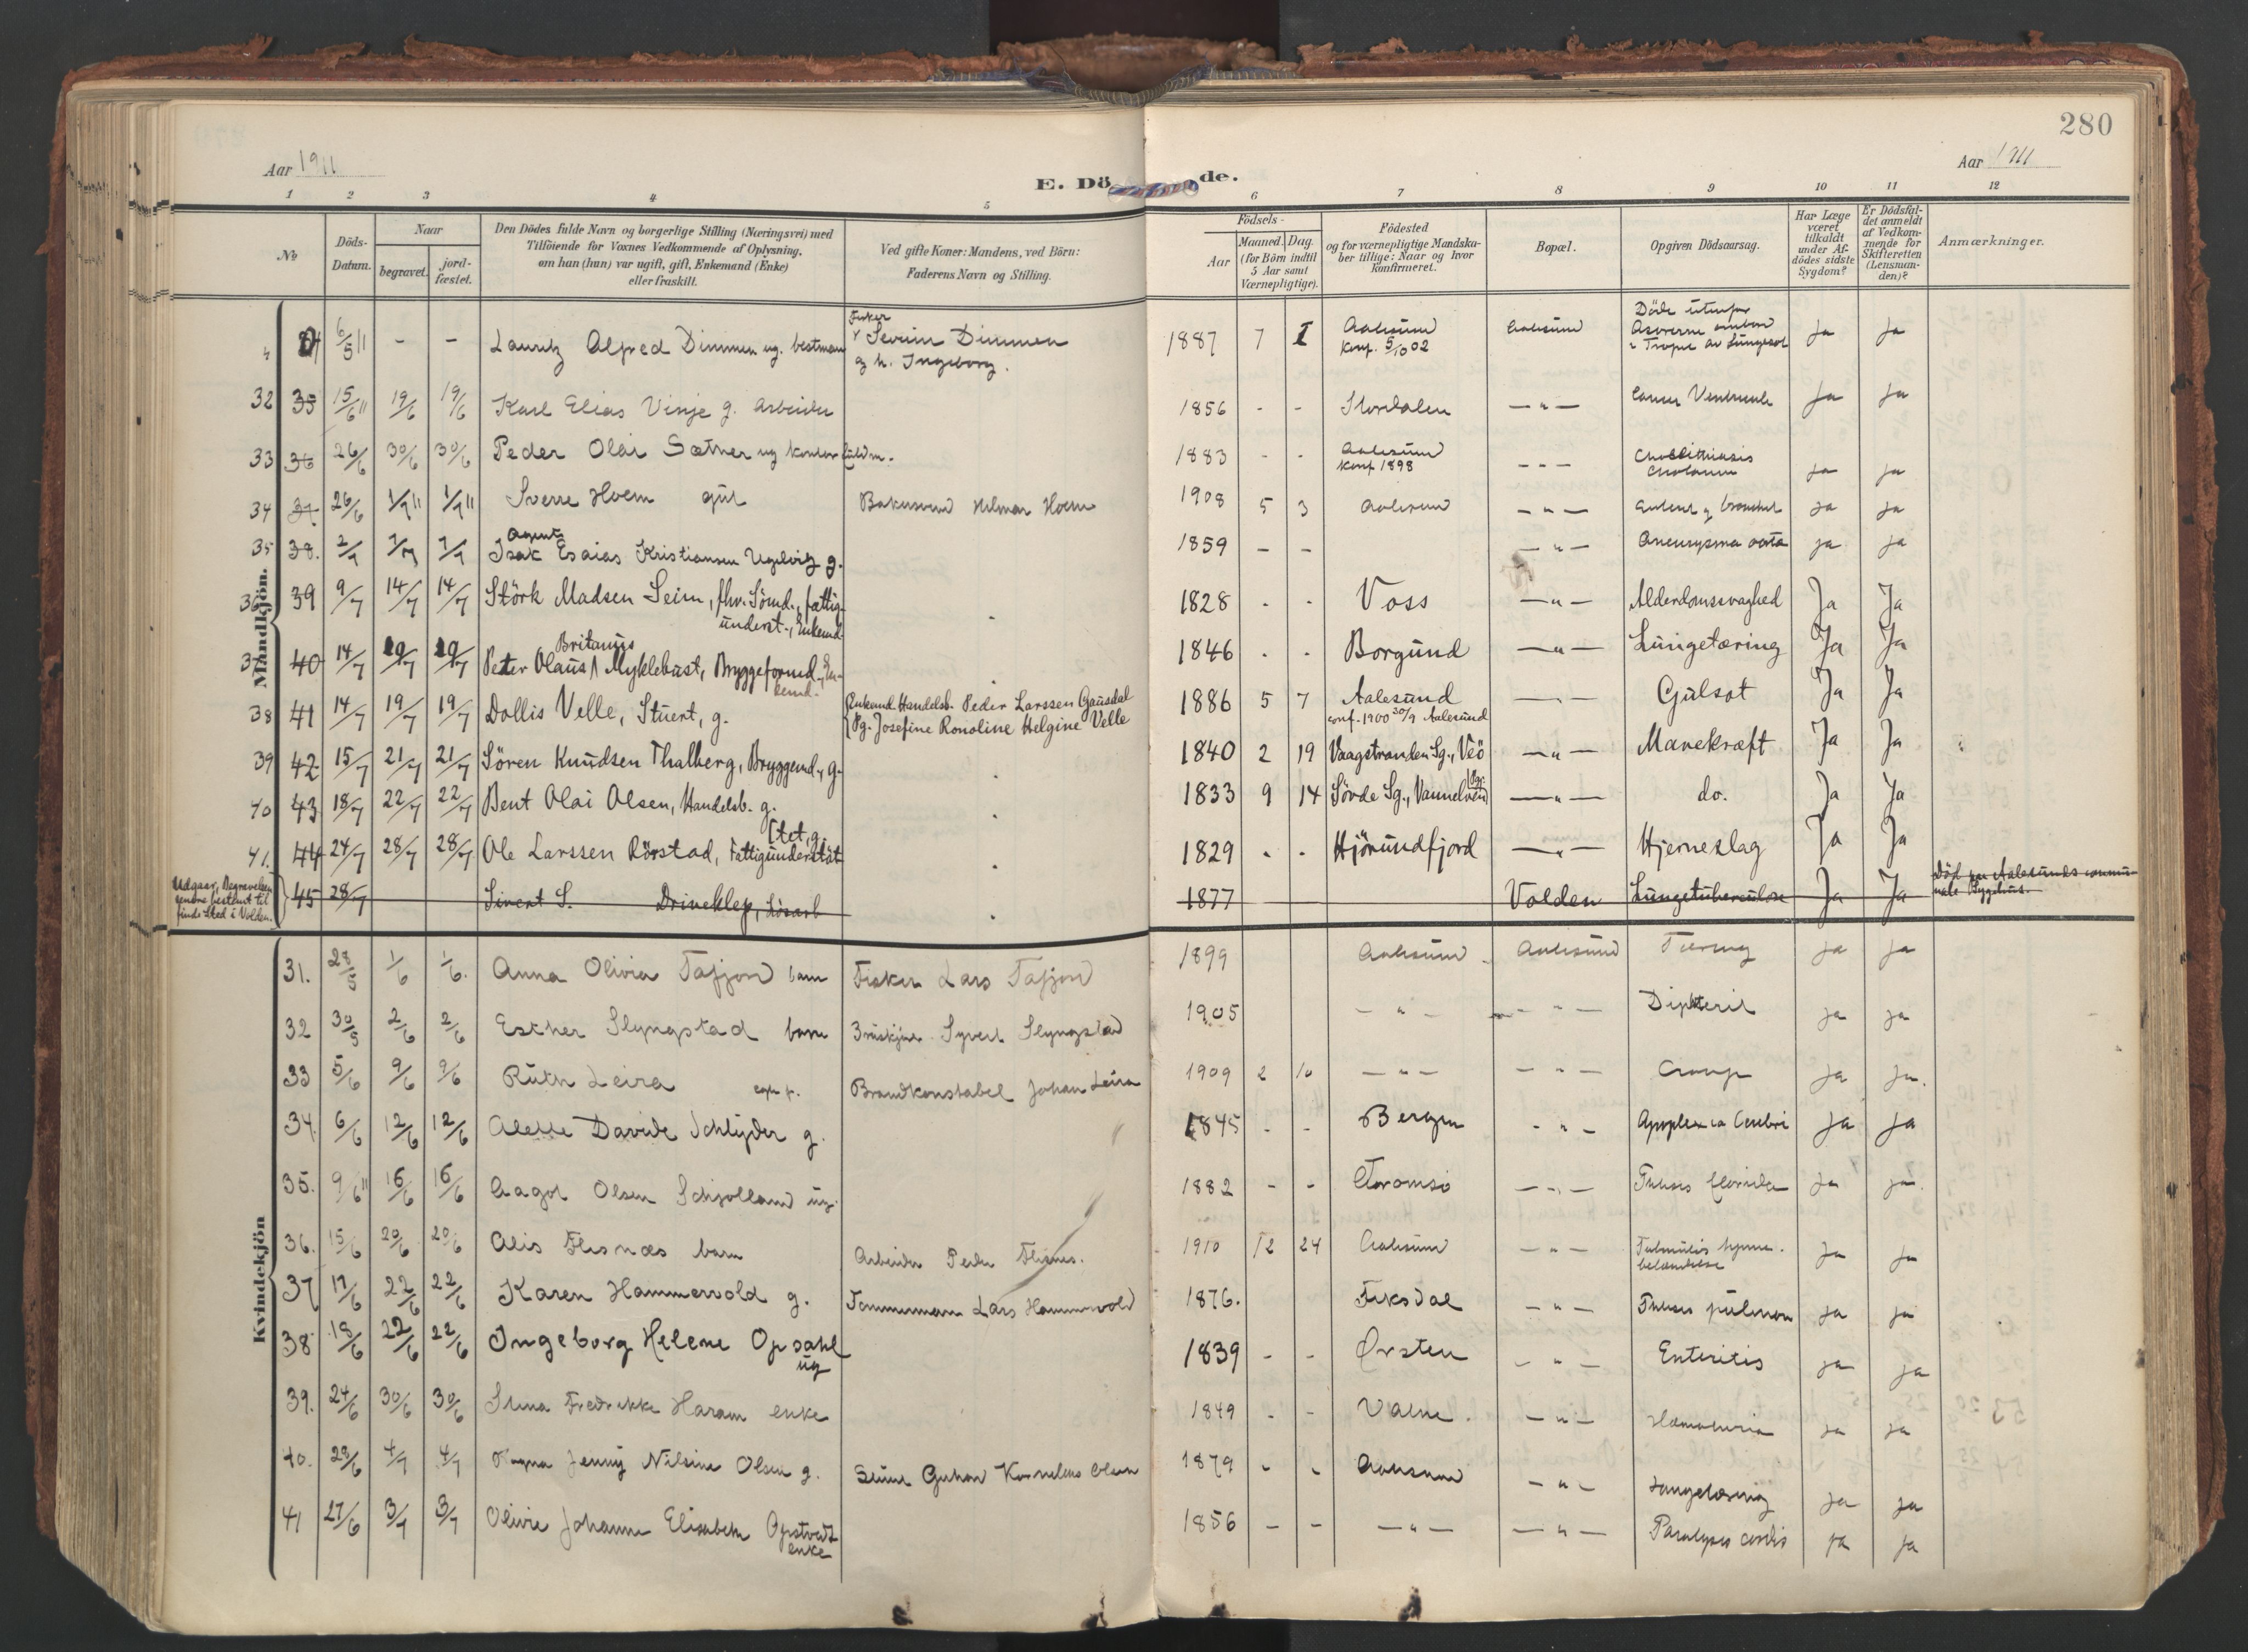 280
Aar 1911
E. Döde.
Aar 1911
1 2 3 4 5 6 7 8 9 10 11 12
No
Döds-Datum.
Naar
begravet.
jord-fæstet.
Den Dödes fulde Navn og borgerlige Stilling (Næringsvei) med
Tilföiende for Voxnes Vedkommende af Oplysning,
om han (hun) var ugift, gift, Enkemand (Enke)
eller fraskilt.
Ved gifte Koner: Mandens, ved Börn:
Faderens Navn og Stilling.
Födsels-
Aar
Maaned. Dag.
(for Börn indtil
5 Aar samt
Værnepligtige).
Födested
og for værnepligtige Mandska-
ber tillige: Naar og hvor
konfirmeret.
Bopæl.
Opgiven Dödsaarsag.
Har Læge
været
tilkaldt
under Af-
dödes sidste
Sygdom?
Er Dödsfal-
det anmeldt
af Vedkom-
mende for
Skifteretten
(Lensman-
den)?
Anmærkninger.
Mandkjön.
6/5 11 - - Lauritz Alfred Dimmen ug. bestmann Fisker Severin Dimmen 1887 7 Aalesund Aalesund Ja Ja
og h. Ingeborg. Konf. 5/10 02
32 35 15/6 11 19/6 19/6 Karl Elias Vinje g. Arbeider 1856 - - Stordalen —"— Cancer Ventriculi Ja Ja
33 36 26/6 30/6 30/6 Peder Olai Sætner ug kontor 1883 - - Aalesund Konf 1898 - - - Ja Ja
34 37 26/6 1/7 11 1/7 11 Sverre Hoem gut Bakersvend Hilmar Hoem 1908 5 3 Aalesund —"— Ja Ja
35 38. 2/7 7/7 7/7 Agent Isak Esaias Kristiansen Ugelvig g. 1859 - - —"— Aneurysma aorta Ja Ja
36 39 9/7 14/7 14/7 Störk Madsen Seim, fhv. Sömd., fattig-
underst., Enkemd. 1828 - - Voss —"— Alderdomssvaghed Ja Ja
37 40 14/7 19/7 19/7 Peter Olaus Britanus Myklebust, Bryggeformd., En-
kemd. 1846 - - Borgund —"— Lungetæring Ja Ja
38 41 14/7 19/7 19/7 Dollis Velle, Stuert, g. Enkemd. Handelsb. Peder Larssen Gausdal
Pg. Josefine Ronoline Helgine Velle 1886 5 7 Aalesund
conf. 1900 30/9 Aalesund Gulsot Ja Ja
39 42 15/7 21/7 21/7 Sören Knudsen Thalberg, Bryggemd., g. 1840 2 19 Vaagstranden Sg., Veö —"— Mavekræft Ja Ja
40 43 18/7 22/7 22/7 Bent Olai Olsen, Handelsb. g. 1833 9 14 Sövde Sg., Vannelven Pgj. —"— do. Ja Ja
41. 44 24/7 28/7 28/7 Ole Larssen Rörstad, Fattigunderstöt-
tet, g. 1829 - - Hjörundfjord —"— Hjerneslag Ja Ja
Udgaar, Begravelsen
senere bestemt til
finde Sted i Volden.
45 28/7 Sivert S. Driveklep, Lösarb 1877 Volden Lungetuberculose Ja Ja Död paa Aalesunds commu-
nale Sygehus.
Kvindekjön
31. 28/5 1/6 1/6. Anna Olivia Tafjord barn Fisker Lars Tafjord 1899 Aalesund Aalesund Tæring Ja Ja
32 30/5 2/6 2/6 Esther Slyngstad barn Syvert Slyngstad 1905 —"— —"— Difterit Ja Ja
33 5/6 9/6 9/6 Ruth Leira Brandkonstabel Johan Leira 1909 2 10 —"— —"— Croup Ja Ja.
34. 6/6 12/6 12/6 Alette Davide Schlyder g. 1845 - - Bergen - " - Apoplexia Cerebri Ja Ja
35. 9/6 11 16/6 16/6 Aagot Olsen Schjolland ug. 1882 - - Tromsø —"— Ja Ja
36. 15/6 20/6 20/6 Alis Flisnæs barn Arbeider Peder Flisnes. 1910 12 24 Aalesund —"— Ja Ja
37 17/6 22/6 22/6 Karen Hammervold g. Tømmermann Lars Hammervold 1876. Fiksdal —"— Ja Ja
38 18/6 22/6 22/6 Ingeborg Helene Opsahl
ug 1839 - - Ørsten —"— Enteritis Ja Ja
39. 24/6 30/6 30/6 Stina Fredrikke Haram enke 1849 - - —"— Hæmaturia Ja Ja
40. 29/6 4/7 4/7 Jenny Nilsine Olsen g. Kornelius Olsen 1879 - - Aalesund —"— Lungetæring Ja Ja
41 27/6 3/7 3/7 Olivie Johanne Elisabeth Opstvedt
enke 1856 - - —"— —"— Paralysis cordis Ja Ja